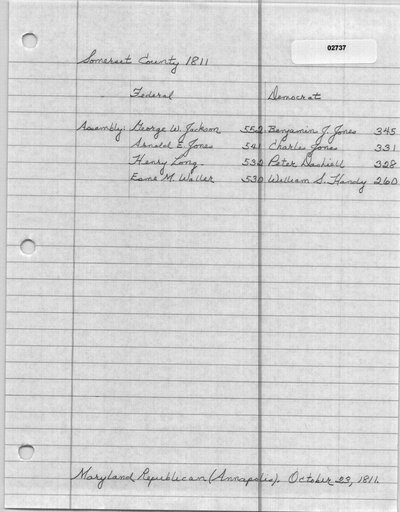 02737
Somerset County 1811
Federal Democrat
Assembly: George W. Jackson 552 Benjamin J. Jones 345
Arnold E. Jones 541 Charles Jones 331
Henry Long 532 Peter Dashiell 328
Esme M. Waller 530 William S. Handy 260
Maryland Republican (Annapolis). October 23, 1811.